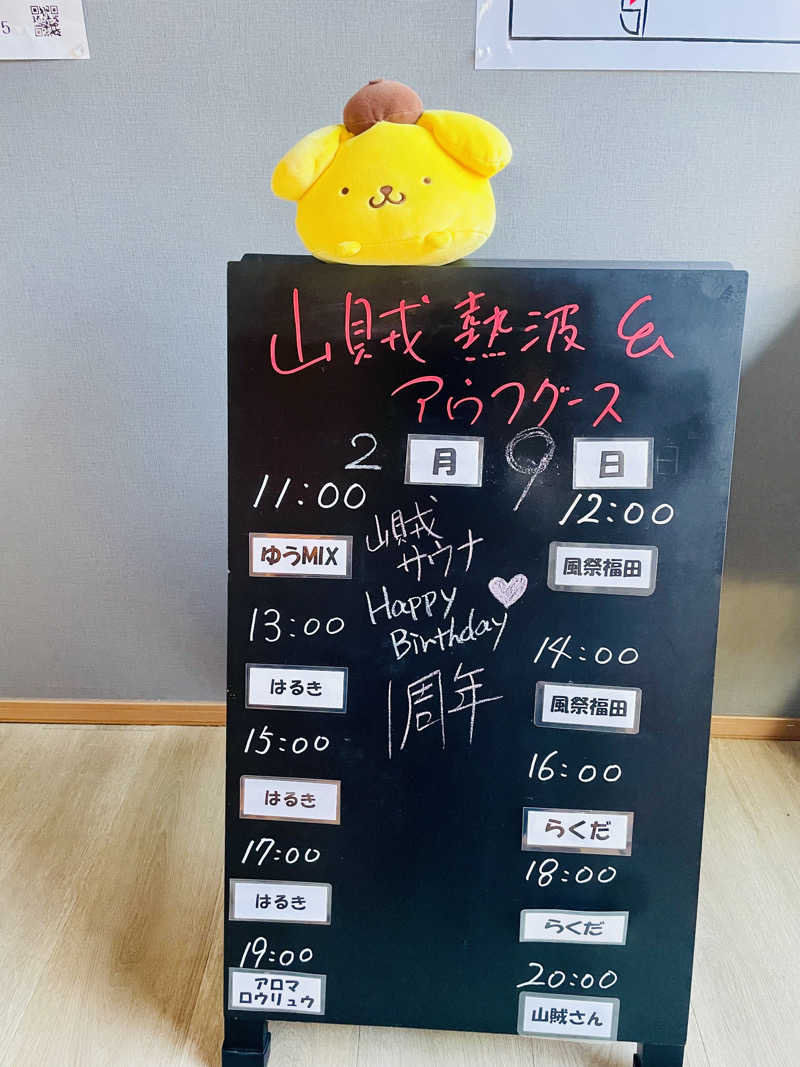 5
山賊 熱波 &
アウフグース
2 月 9 日
11:00
ゆうMIX
12:00
風祭福田
山賊
サウナ
Happy
Birthday
1周年
13:00
はるき
14:00
風祭福田
15:00
はるき
16:00
らくだ
17:00
はるき
18:00
らくだ
19:00
アロマ
ロウリュウ
20:00
山賊さん